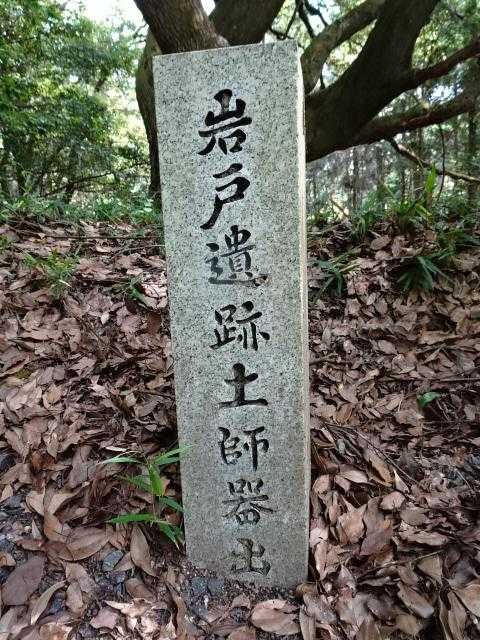 岩戸遺跡土師器出